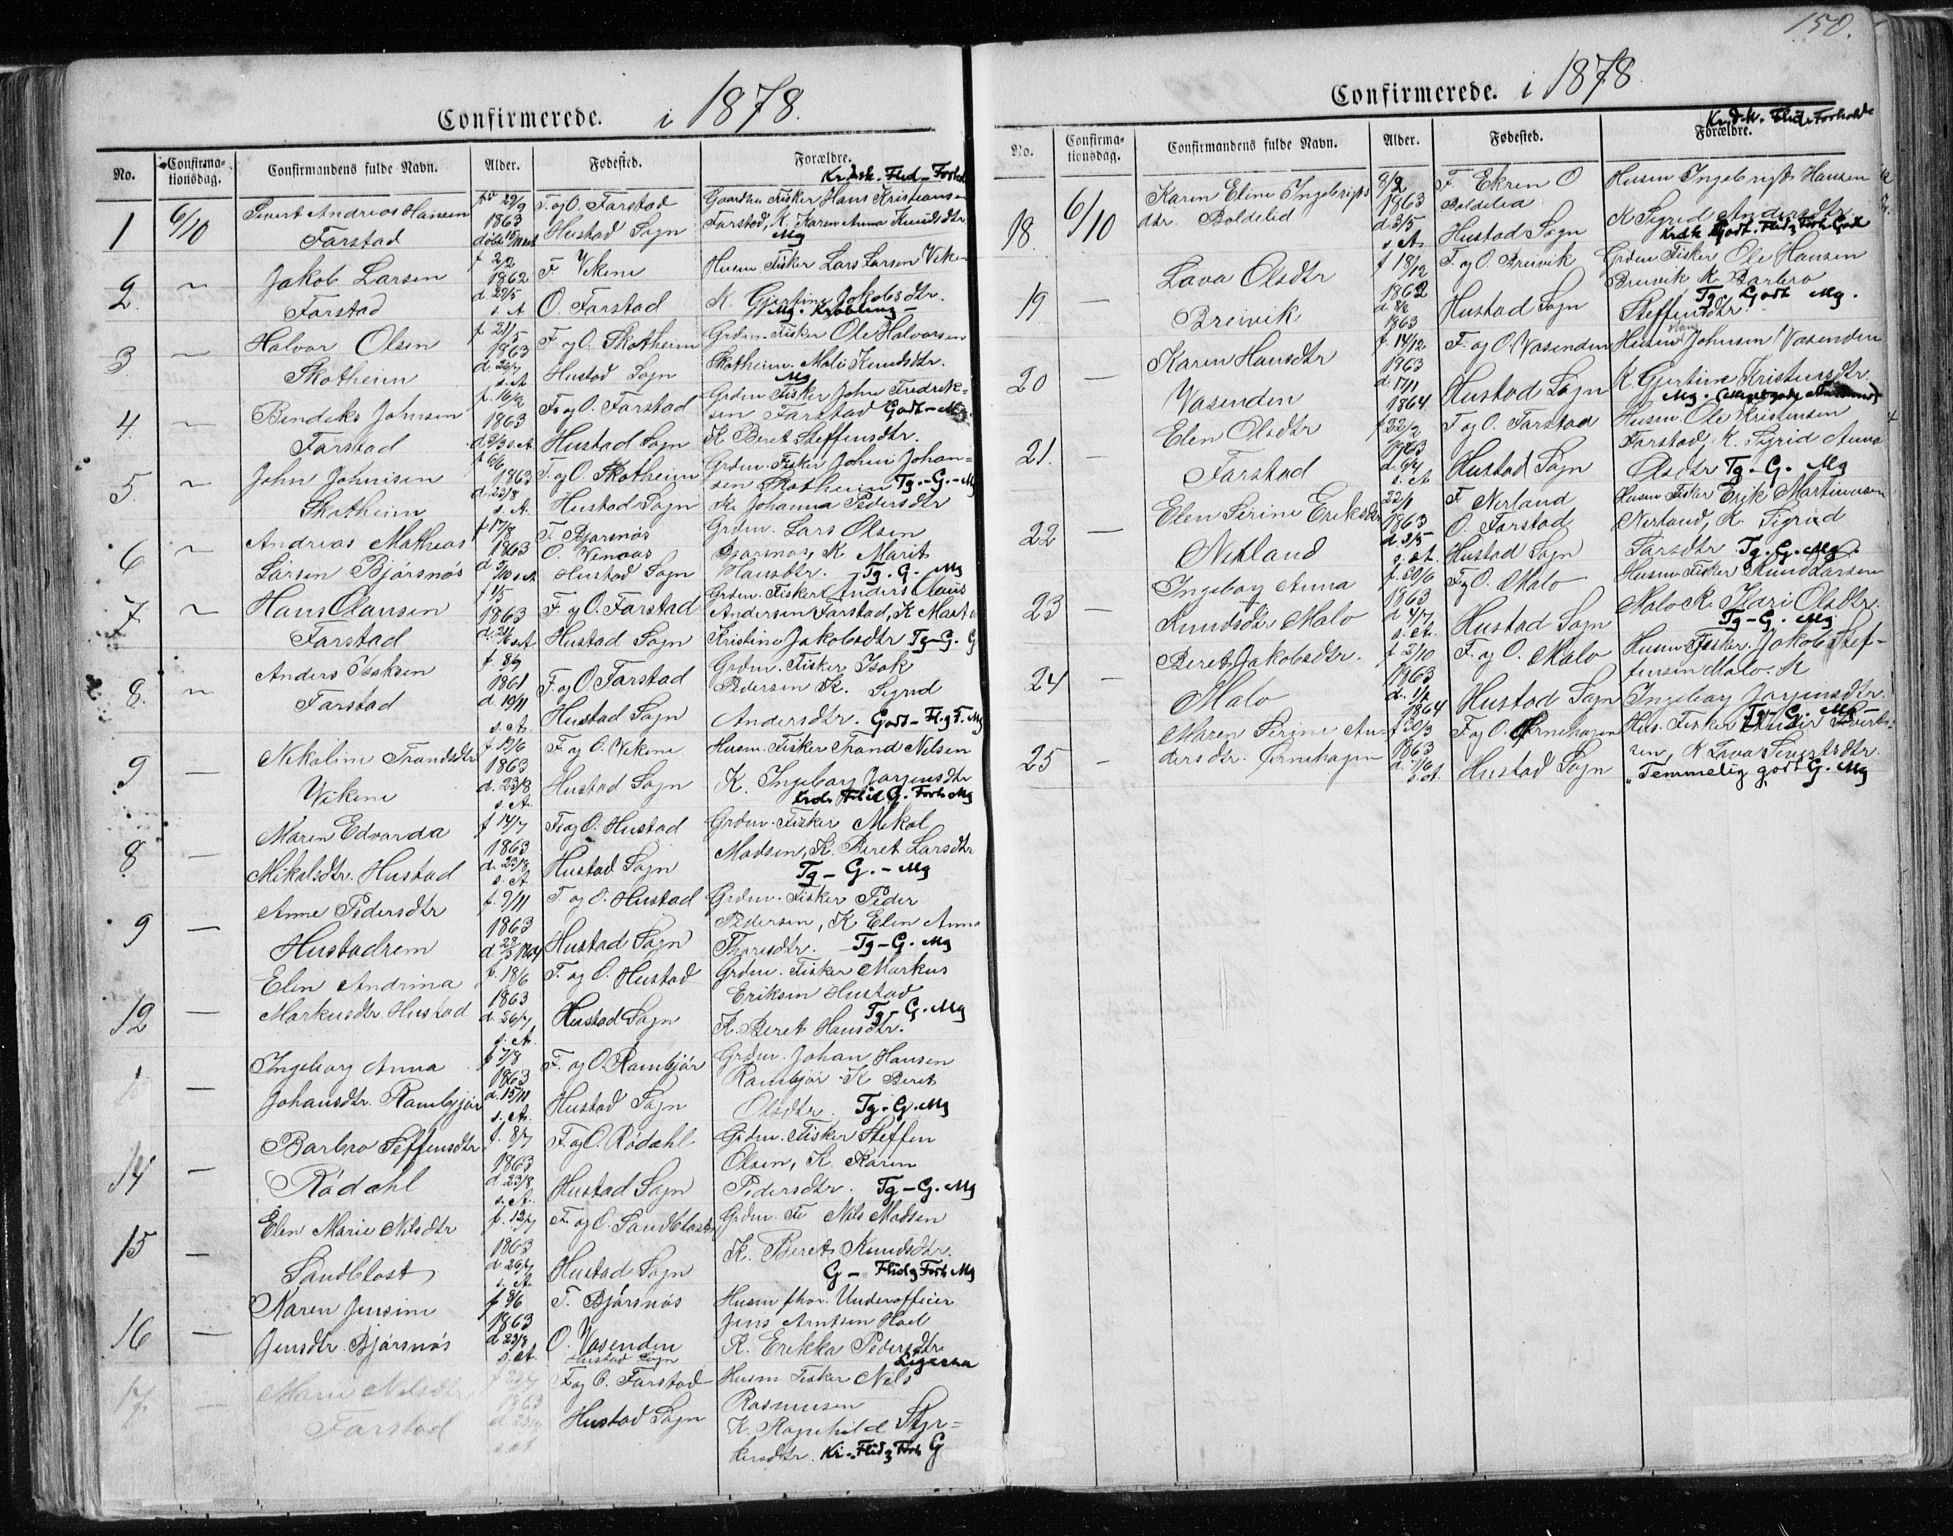 150.
Confirmerede. i 1878.
No.
Confirma-
tionsdag.
Confirmandens fulde Navn.
Alder.
Fødested.
Forældre.
1
6/10
Sivert Andreas Hansen
Farstad
29/9
1863
F. og O. Farstad
Hustad Sogn
Gaardm Fisker Hans Kristiansen
Farstad, K. Karen Anna Knudsdtr
Mg
2
Jakob Larsen
Farstad
1862
d. 29/5
s. A
F Vikene
O. Farstad
Husm Fisker Lars Larsen Vike-
K. Gjertine Jakobsdtr.
3
Halvor Olsen
Skotheim
1863
s. A
F og O. Skotheim
Hustad Sogn
Grdm. Fisker Ole Halvorsen
Skotheim. Mali Knudsdtr.
Mg
4.
Bendiks Johnsen
Farstad
1863
F. og O. Farstad
Hustad Sogn
Grdm Fisker John Fredrik-
sen Farstad Godt - Mg.
K Beret Steffensdtr.
5
John Johnsen
Skotheim
1863
d. 23/8
s. A.
F. og O. Skotheim
Hustad Sogn
Grdm. Fisker John Johan-
sen Skotheim Tg. - G. - Mg
K. Johanna Pedersdtr
6
Andreas Mathias
Larsen Bjørsnøs
f 17/8
1863
F. Bjørsnøs
Hustad Sogn
Grdm. Lars Olsen
K. Marit
Hansdtr. Tg. G. Mg
7
Hans Olausen
Farstad
f 1/5
1863
F. og O. Farstad
Hustad Sogn
Grdm. Fisker Anders Olaus
Andersen Farstad, K Mart
Kristine Jakobsdtr Tg-G. G
8.
Anders Isaksen
Farstad
1861
d. 19/11
s. A.
F. og O Farstad
Hustad Sogn
Grdm. Fisker Isak
Pedersen K. Sigrid
Andersdtr. Godt - Fl. g F. Mg
9
Nikoline Trondsdtr
Vikene
f 12/6
1863
d. 23/8
s. A.
F. og O. Vikene
Hustad Sogn
Husm. Fisker Trond Nilsen
K. Ingeborg Jørgensdtr
8
Maren Edvarda
Mikalsdtr. Hustad
f 14/7
1863
d. 23/8
s. A.
F. og O. Hustad
Hustad Sogn
Grdm. Fisker Mikal
Madsen, K. Beret Larsdtr
Tg - G. - Mg
9
Anne Pedersdtr
Hustadrem
f. 9/11
1863
F. og O. Hustad
Hustad Sogn
Grdm. Fisker Peder
Pedersen, K Elen Anna
Tg - G. Mg
12
Elen Andrina
Markusdtr Hustad
f. 18/6
1863
d. 26/7
s. A.
F. og O. Hustad
Hustad Sogn
Grdm. Fisker Markus
Eriksen Hustad
Tg - G. Mg
K. Beret Hansdtr.
Ingeborg Anna
Johansdtr. Rambjør
f 7/8
1863
d. 15/11
s. A.
F. og O. Rambjør
Hustad Sogn
Grdm. Johan Hansen
Rambjør K Beret
Olsdtr. Tg. G. Mg
14
Barbro Steffensdtr
Rødahl
f. 8/7
1863
d. 23/8
s. A.
F. og O. Rødahl
Hustad Sogn
Grdm. Fisker Steffen
Olsen, K. Karen
Pedersdtr. Tg - G. Mg
15
Elen Marie Nilsdtr
Sandblost
f. 12/7
1863
d. 26/7
s. A.
F. og O. Sandblost
Hustad Sogn
Grdm. Fi Nils Madsen
K. Beret Knudsdtr.
G - Flid g Forh Mg
16
Karen Jensine
Jensdtr Bjørsnøs
f 8/6
1863
d 23/8
s. A.
F. Bjørsnøs
O. Vasenden
Hustad Sogn
Husm fhv. Underofficer
Jens Arntsen Hoel
K. Erikka Pedersdtr
Ligesaa
17.
Marie Nilsdtr
Farstad
1863
s. A
F. og O. Farstad
Hustad Sogn
Husm Fisker Nils
Rasmusen
K. Ragnhild Styr-
kersdtr. Kr. - Flid g Forh G
Confirmerede. i 1878.
No.
Confirma-
tionsdag.
Confirmandens fulde Navn.
Alder.
Fødested.
Forældre.
18.
6/10
Karen Eline Ingebrigts
dtr. Boldelid
8/2
1863
d. 3/5
s. A.
F. Ekren O
Boldelid
Hustad Sogn
Husm Ingebrigt Hansen
K Sigrid Andersdtr
Krdsk Godt. Flid g Forh Godt
19
Lava Olsdtr
Breivik
f 18/12
1862
1863
F. og O. Breivik
Hustad Sogn
Grdm Fisker Ole Hansen
Breivik K Barbro
Steffensdtr. Tg. Godt Mg.
20
Karen Hansdtr
Vasenden
f. 14/12
1863
1864
F. og O. Vasenden
Hustad Sogn
Husm Hans Johnsen Vasenden
K. Gjertine Kristensdtr.
21.
Elen Olsdtr
Farstad
1863
s. A
F og O. Farstad
Hustad Sogn
Husm Ole Kristensen
Farstad, K. Sigrid Anna
Olsdtr Tg. - G. Mg
22
Elen Serine Eriksdtr
Nerland
22/1
1863
d. 3/5
s. A.
F. Nerland
O. Farstad
Hustad Sogn
Husm Fisker Erik Martinusen
Nerland, K. Sigrid
Larsdtr Tg. G. Mg.
23
Ingeborg Anna
Knudsdtr Malo
f. 20/6
1863
s. A.
F. og O. Malo
Hustad Sogn
Husm Fisker Knud Larsen
Malo K. Kari Olsdtr.
Tg - G. Mg
24
Beret Jakobsdtr.
Malo
1863
1864
F. og O. Malo
Hustad Sogn
Husm Fisker Jakob Stef-
fensen Malo. K
Ingeborg Jørgensdtr.
Tg - G. Mg -
25
Maren Serine An-
dersdtr. Ørnehagen
f 30/3
1863
s. A.
F. og O. Ørnehagen
Hustad Sogn
Hus. Fisker Anders Siverts-
sen, K Lova Sivertsdtr.
"Temmelig godt G. Mg